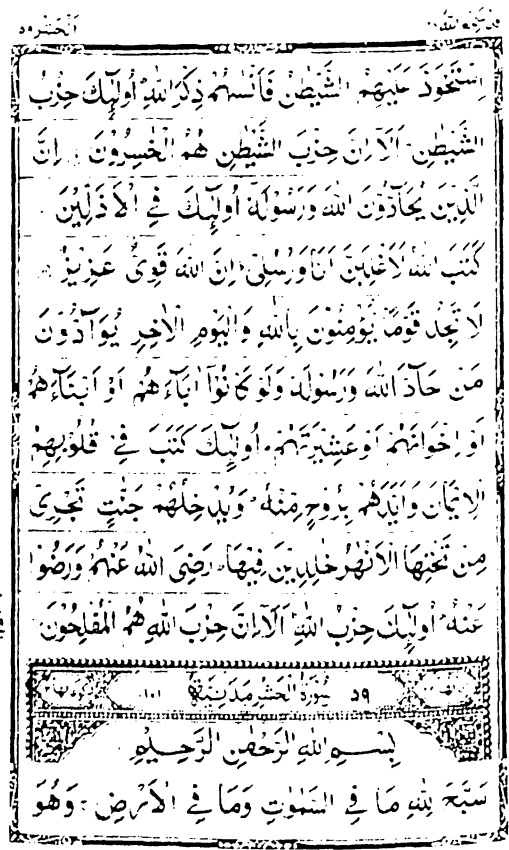 قد سمع الله ٢٨ الحشر ٥٩
اِسْتَحْوَذَ عَلَيْهِمُ الشَّيْطٰنُ فَاَنْسٰىهُمْ ذِكْرَ اللّٰهِ اُولٰٓئِكَ حِزْبُ
الشَّيْطٰنِ اَلَآ اِنَّ حِزْبَ الشَّيْطٰنِ هُمُ الْخٰسِرُوْنَ اِنَّ
الَّذِيْنَ يُحَآدُّوْنَ اللّٰهَ وَرَسُوْلَهٗٓ اُولٰٓئِكَ فِى الْاَذَلِّيْنَ
كَتَبَ اللّٰهُ لَاَغْلِبَنَّ اَنَا وَرُسُلِىْ اِنَّ اللّٰهَ قَوِىٌّ عَزِيْزٌ
لَا تَجِدُ قَوْمًا يُّؤْمِنُوْنَ بِاللّٰهِ وَالْيَوْمِ الْاٰخِرِ يُوَآدُّوْنَ
مَنْ حَآدَّ اللّٰهَ وَرَسُوْلَهٗ وَلَوْ كَانُوْٓا اٰبَآءَهُمْ اَوْ اَبْنَآءَهُمْ
اَوْ اِخْوَانَهُمْ اَوْ عَشِيْرَتَهُمْ اُولٰٓئِكَ كَتَبَ فِىْ قُلُوْبِهِمُ
الْاِيْمَانَ وَاَيَّدَهُمْ بِرُوْحٍ مِّنْهُ وَيُدْخِلُهُمْ جَنّٰتٍ تَجْرِىْ
مِنْ تَحْتِهَا الْاَنْهٰرُ خٰلِدِيْنَ فِيْهَا رَضِىَ اللّٰهُ عَنْهُمْ وَرَضُوْا
عَنْهُ اُولٰٓئِكَ حِزْبُ اللّٰهِ اَلَآ اِنَّ حِزْبَ اللّٰهِ هُمُ الْمُفْلِحُوْنَ
٥٩ سُوْرَةُ الْحَشْرِ مَدَنِيَّةٌ ١٠١
بِسْمِ اللّٰهِ الرَّحْمٰنِ الرَّحِيْمِ
سَبَّحَ لِلّٰهِ مَا فِى السَّمٰوٰتِ وَمَا فِى الْاَرْضِ وَهُوَ